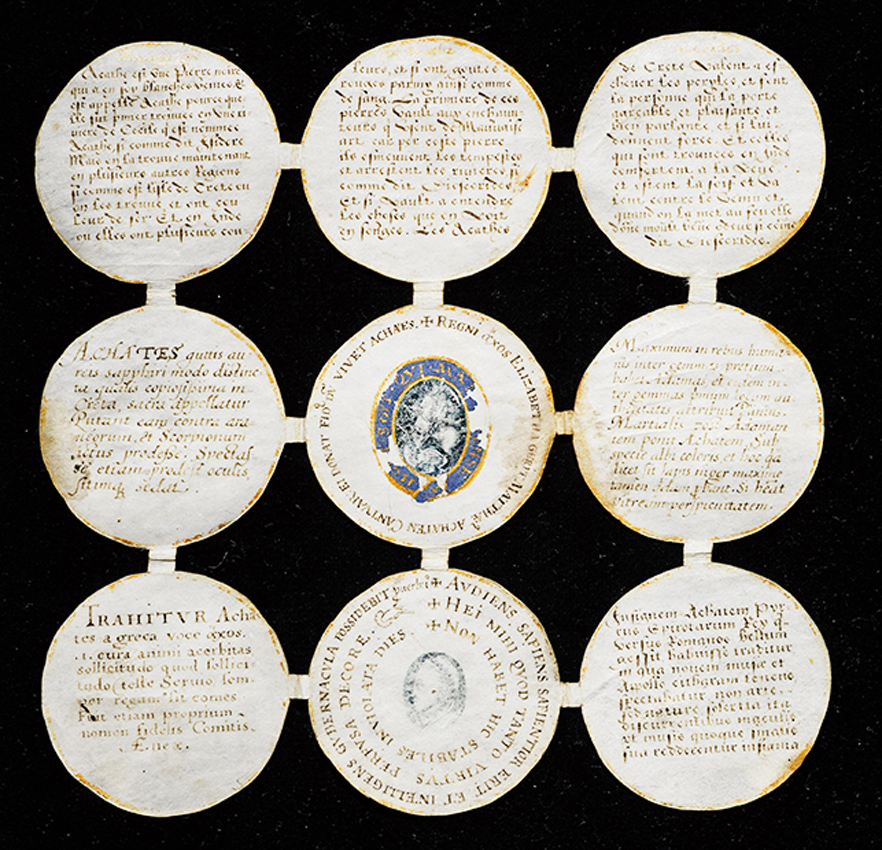 Acathe est une Pierre noire
qui a en soy blanches venes, Et
est appelle Acathe pource que
elle fut trouvee en une ri
viere de Cecile q̃ est nommee
Acathe, si comme dit Isidere
Mais en la trouve maintenant
en plusieurs autres Regions
si comme est l'isle de Crete ou
on les treuve, et ont cou
leur de fer. Et en Inde
ou elles ont plusieurs cou
leurs, et si ont goutes
rouges parmy ainsi comme
de sang. La premiere de ces
pierres vault aux enchan
teurs q̃ usent de Mauvaise
art car par ceste pierre
ils esmeuvent les tempestes
et arrestent les rivieres si
comme dit Diosecrides
Et si vault a entendre
les choses que en voit
en songes. Les Acathes
de Crete valent a es
chever les perylz, et font
la personne qui la porte
gareable, et plaisante et
bien parlante, et si lui
donnent force. Et celles
qui sont trouvees en Inde
comfortent a la veue
et estent la soif et va
lent contre le venin et
quand on la met au feu elle
done moult bone odeur si come
dit Diosecrides.
ACHATES guttis au
reis sapphiri modo distinc
ta qualis copiosissima in
Creta, sacra appellatur
Putant eam contra ara
neorum, et Scorpionum
ictus prodesse. Spectas
se etiam prodest oculis,
sitimq̃ sedat.
+ REGNI ἄχος ELIZABETHA GERIT MATTHÆ ACHATEN CANTVAR: EI DONET FIDꝰ DŪ VIVET ACHAES.
Maximum in rebus huma
nis inter gemmas pretium
habet Adamas, et eidem in
ter gemmas primum locum au
thoritatis attribuit Plinius.
Martialis pro Adaman
tem ponit Achatem, Sub
specie albi coloris, et hoc qa
licet sit lapis niger maxime
tamen Adam placet. Si heat
vitream perspicuitatem.
TRAHITVR Acha
tes a greca voce ἄχος.
.i. cura animi acerbitas
sollicitudo quod sollici
tudo (teste Servio) sem
per regum sit comes
Fuit etiam proprium
nomen fidelis Comitis
Æneæ.
+ AVDIENS SAPIENS SAPIENTIOR ERIT ET INTELLIGENS GVBERNACVLA POSSIDEBIT
+ HEI MIHI QVOD TANTO VIRTVS PERFVSA DECORE.
+ NON HABET HIC STABILES INVIOLATA DIES
Insignem Achatem Pyr
rus Epirotarum Rex q̃
versus Romanos bellum
gessit habuisse traditur
in qua novem musæ et
Apollo citharam tenens
spectabatur non arte
sed naturæ solertia ita
discurrentibus
et musis quoque
sua redderentur insignia